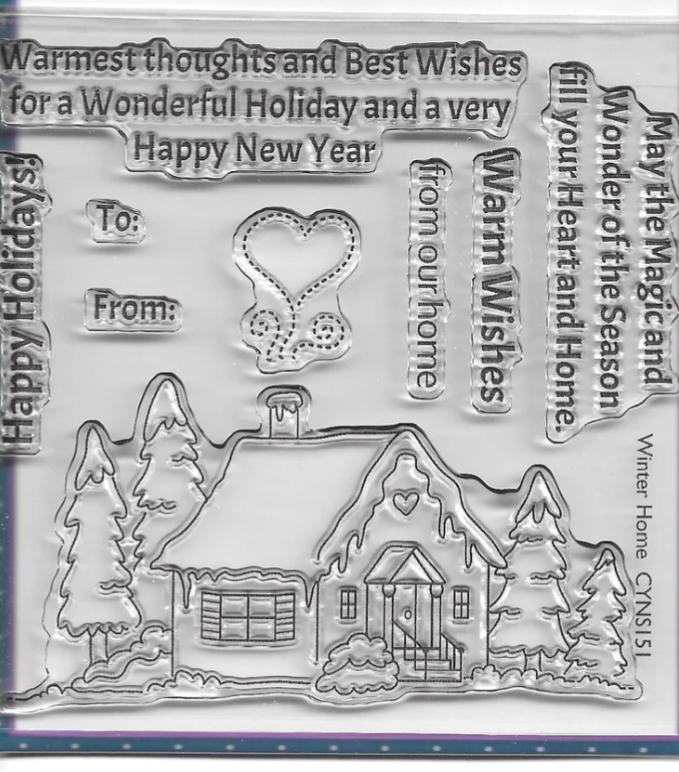 Warmest thoughts and Best Wishes
for a Wonderful Holiday and a very
Happy New Year
Happy Holidays!
To:
From:
Warm Wishes
from our home
May the Magic and
Wonder of the Season
fill your Heart and Home.
Winter Home CYNS151